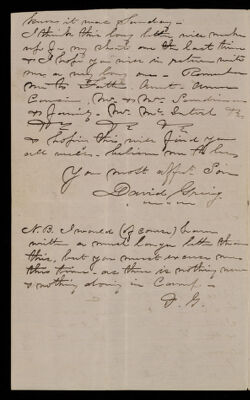 knew it was Sunday -
I think this long letter will make
up for my short one the last time
& I hope you will in return write
me a very long one - Remember
me to Father. Aunt - Anna
Cousin, Mr & Mrs
& family - Mr. Mc &c,
&c &c &c
& hoping this will find you
all well. believe me to be
Your most affect. Son
David Greig
N.B. I would (of course) have
written a much longer letter than
this, but you must excuse me
this time - as there is nothing new
& nothing doing in Camp. -
D. G.